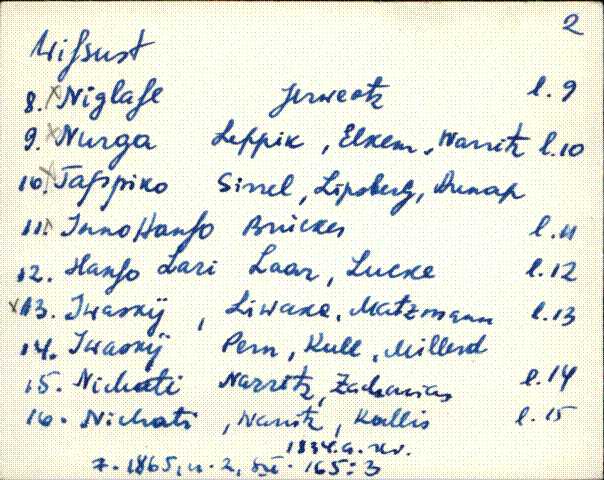 2
Wissust
8. Niglase Jerweotz l. 9
9. Nurga Leppik, Elken, Warritz l. 10
10. Tasspiko Sirrel, Lipsberg,
11. Inno Hanso Brücker l. 11
12. Hanso Lari Laar, Lucke l. 12
13. Iwaskij, Liwake, Matzmann l. 13
14. Iwaskij Pern, Kull, Millerd
15. Nichati Narritz, Zacharias l. 14
16. Nichati, Narritz, Kallis l. 15
1834. a.
1865, n. 2, 165:3